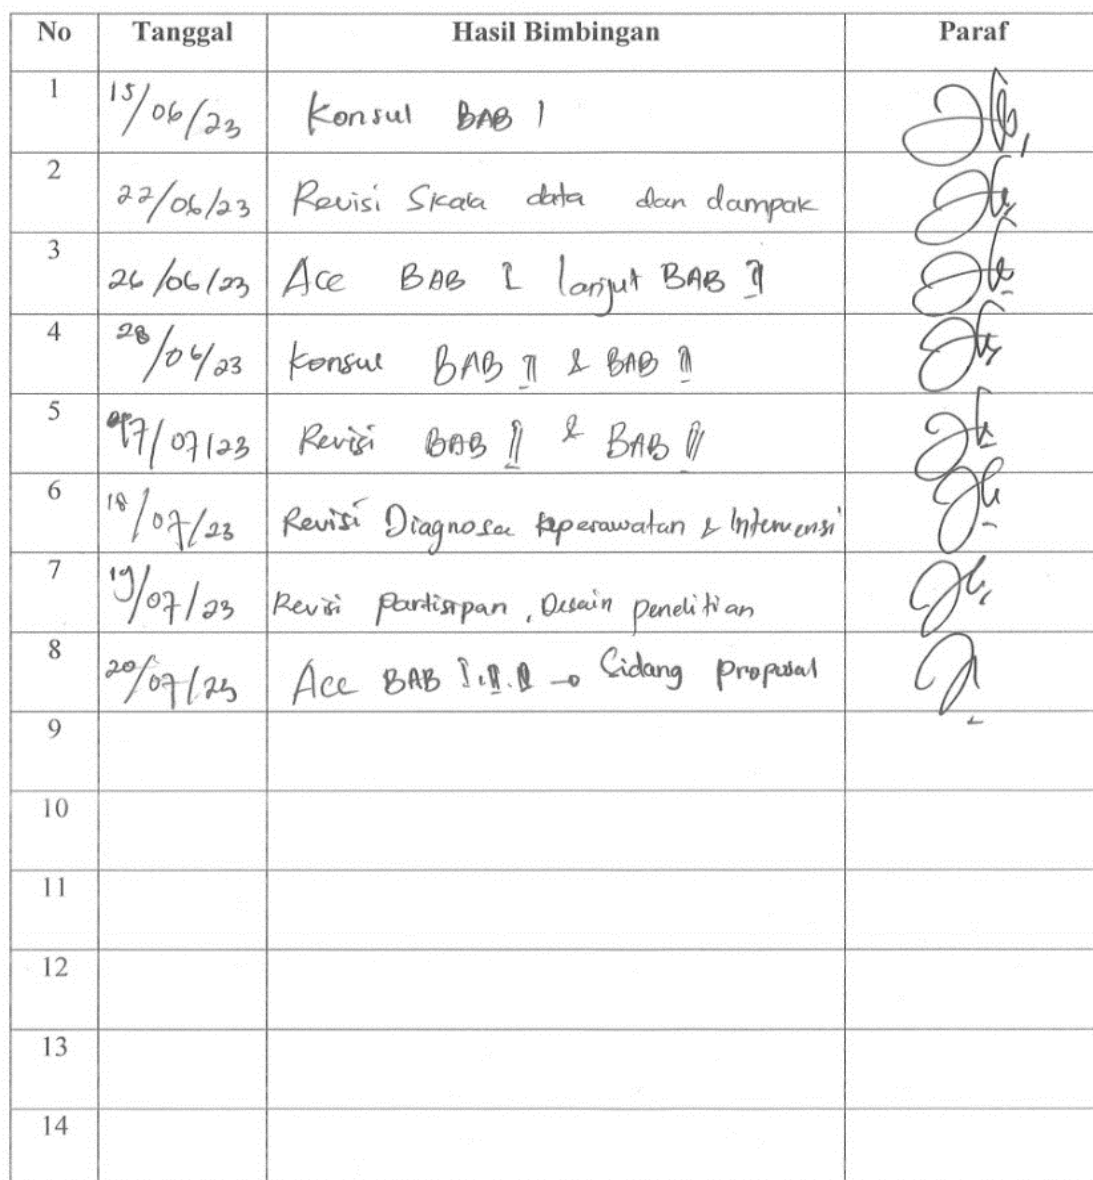 No Tanggal Hasil Bimbingan Paraf
1 15/06/23 Konsul BAB I
2 22/06/23 Revisi Skala data dan dampak
3 26/06/23 Acc BAB I lanjut BAB II
4 28/06/23 Konsul BAB II & BAB
5 17/07/23 Revisi BAB II & BAB
6 18/07/23 Revisi Diagnosa keperawatan & Intervensi
7 19/07/23 Revisi partisipan, Desain penelitian
8 20/07/23 Acc BAB I. II. → Sidang proposal
9
10
11
12
13
14